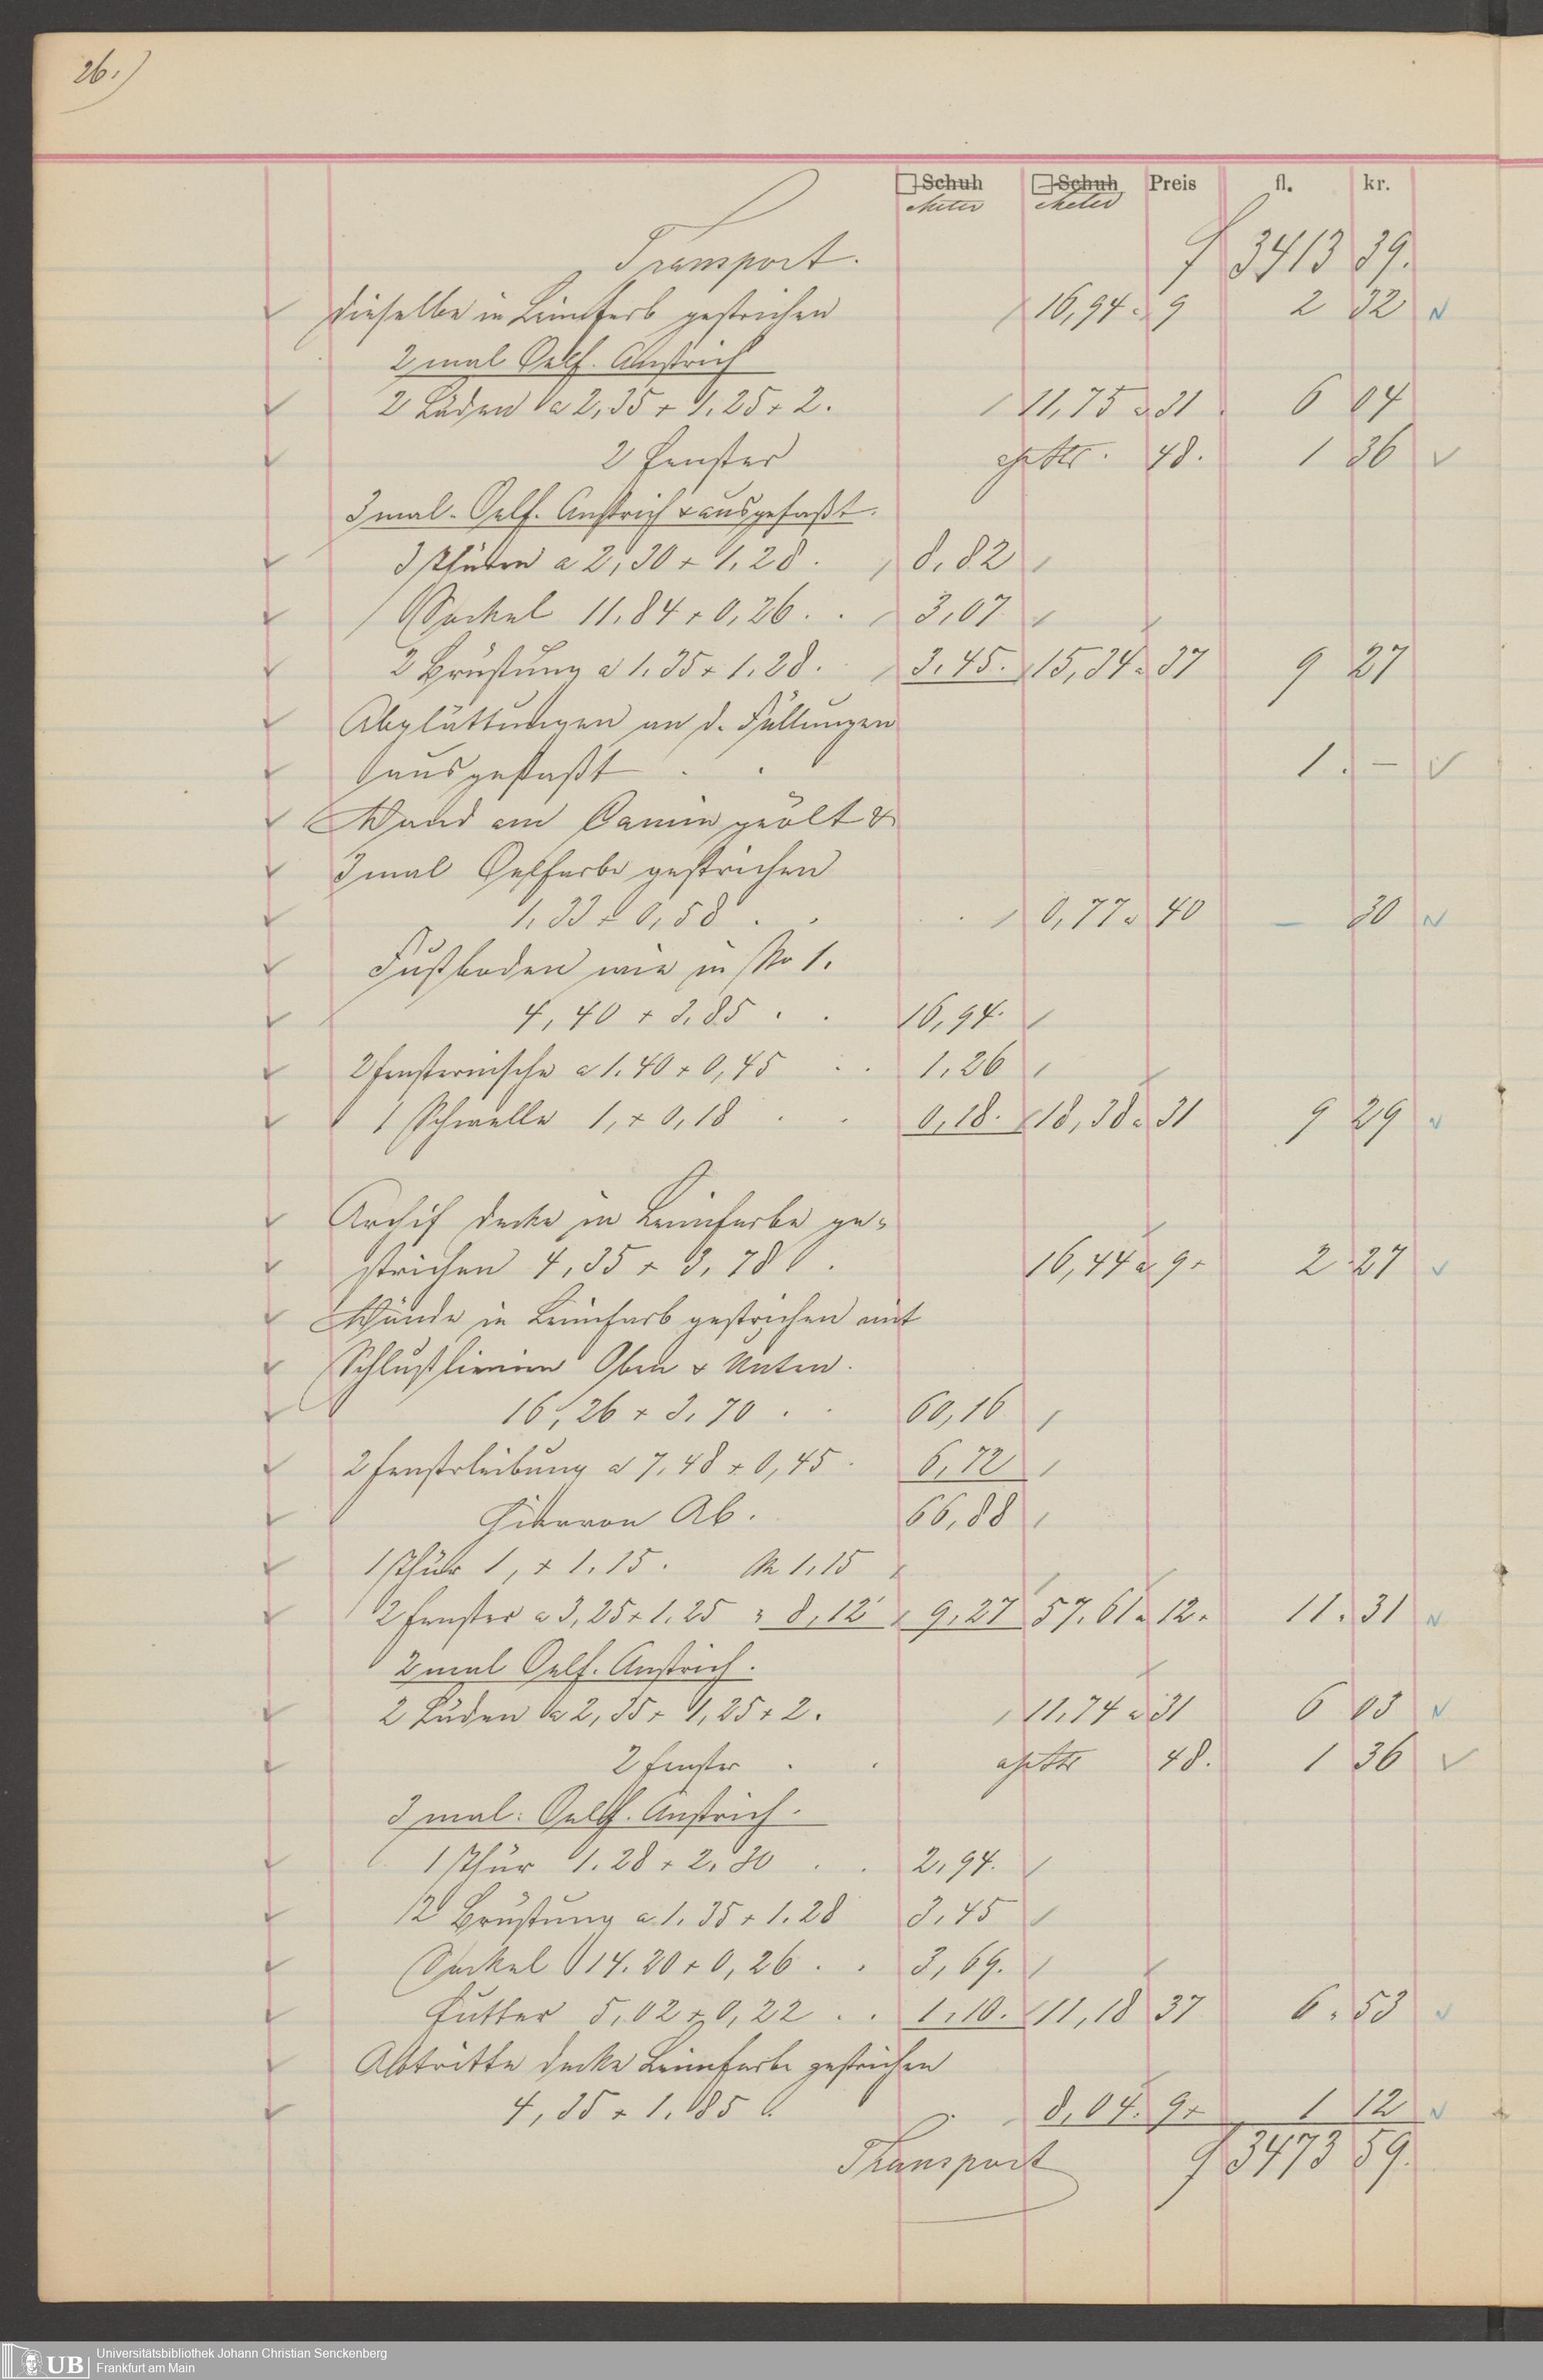 26.)
□ Schuh □ Schuh Preis fl. kr.
Meter Meter
Transport. f 3413 39.
Dieselbe in Leimfarb gestrichen 16,94 a 9 2 32
2 mal Oelf. Anstrich
2 Läden a 2,35 + 1.25 + 2. 11,75 a 31 6 04
2 Fenster 48. 1 36
3 mal. Oelf. Anstrich & ausgefaßt.
3 Thüren a 2,30 + 1,28. 8,82
Sockel 11,84 + 0,26. 3,07
2 Brüstung a 1.35 + 1.28. 3.45. 15,34 a 37 9 27
Abplättungen an d. Füllungen
ausgefaßt 1. –
Wand am Camin geölt &
3 mal Oelfarbe gestrichen
1,33 + 0,58 0,77 a 40 – 30
Fußboden wie in No 1.
4,40 + 3,85 16,94
2 Fensternische a 1.40 + 0,45 1,26
1 Schwelle 1, + 0,18 0,18. 18,38 a 31 9 29
Archif Decke in Leimfarbe ge-
strichen 4,35 + 3,78. 16,44 a 9 2 27
Wände in Leimfarb gestrichen mit
Schlußlienien Oben & Unten.
16,26 + 3,70 60,16
2 Fensterleibung a 7,48 + 0,45. 6,72
Hiervon Ab. 66,88
1 Thür 1, + 1.15. M 1,15
2 Fenster a 3,25 + 1.25 " 8,12 9,27 57,61 a 12. 11. 31
2 mal Oelf. Anstrich.
2 Läden a 2,35 + 1,25 + 2. 11,74 a 31 6 03
2 Fenster 48. 1 36
3 mal. Oelf. Anstrich.
1 Thür 1.28 + 2,30 2,94.
2 Brüstung a 1.35 + 1.28 3,45
Sockel 14.20 + 0,26 3,69.
Futter 5,02 + 0,22 1.10. 11,18 37 6. 53
Abtritte Decke Leimfarbe gestrichen
4,35 + 1.85 8,04. 9 1 12
Transport f 3473 59.
UB Universitätsbibliothek Johann Christian Senckenberg
Frankfurt am Main